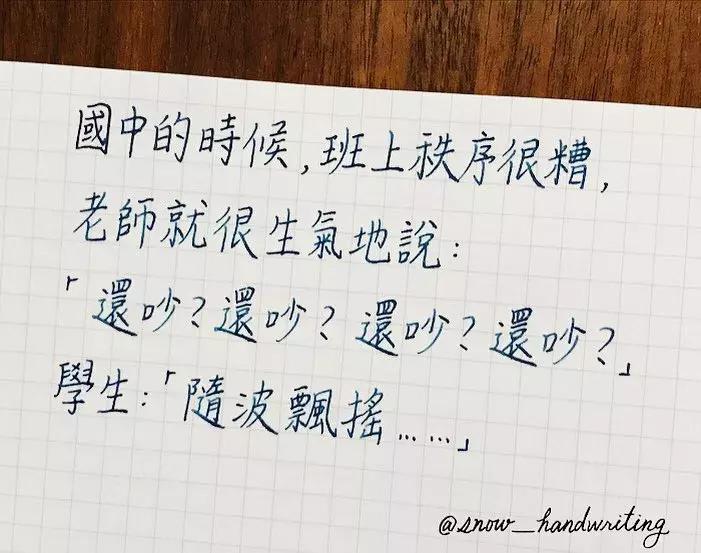 國中的時候,班上秩序很糟,
老師就很生氣地說:
「還吵?還吵?還吵?還吵?」
學生:「隨波飄搖……」
@snow_handwriting